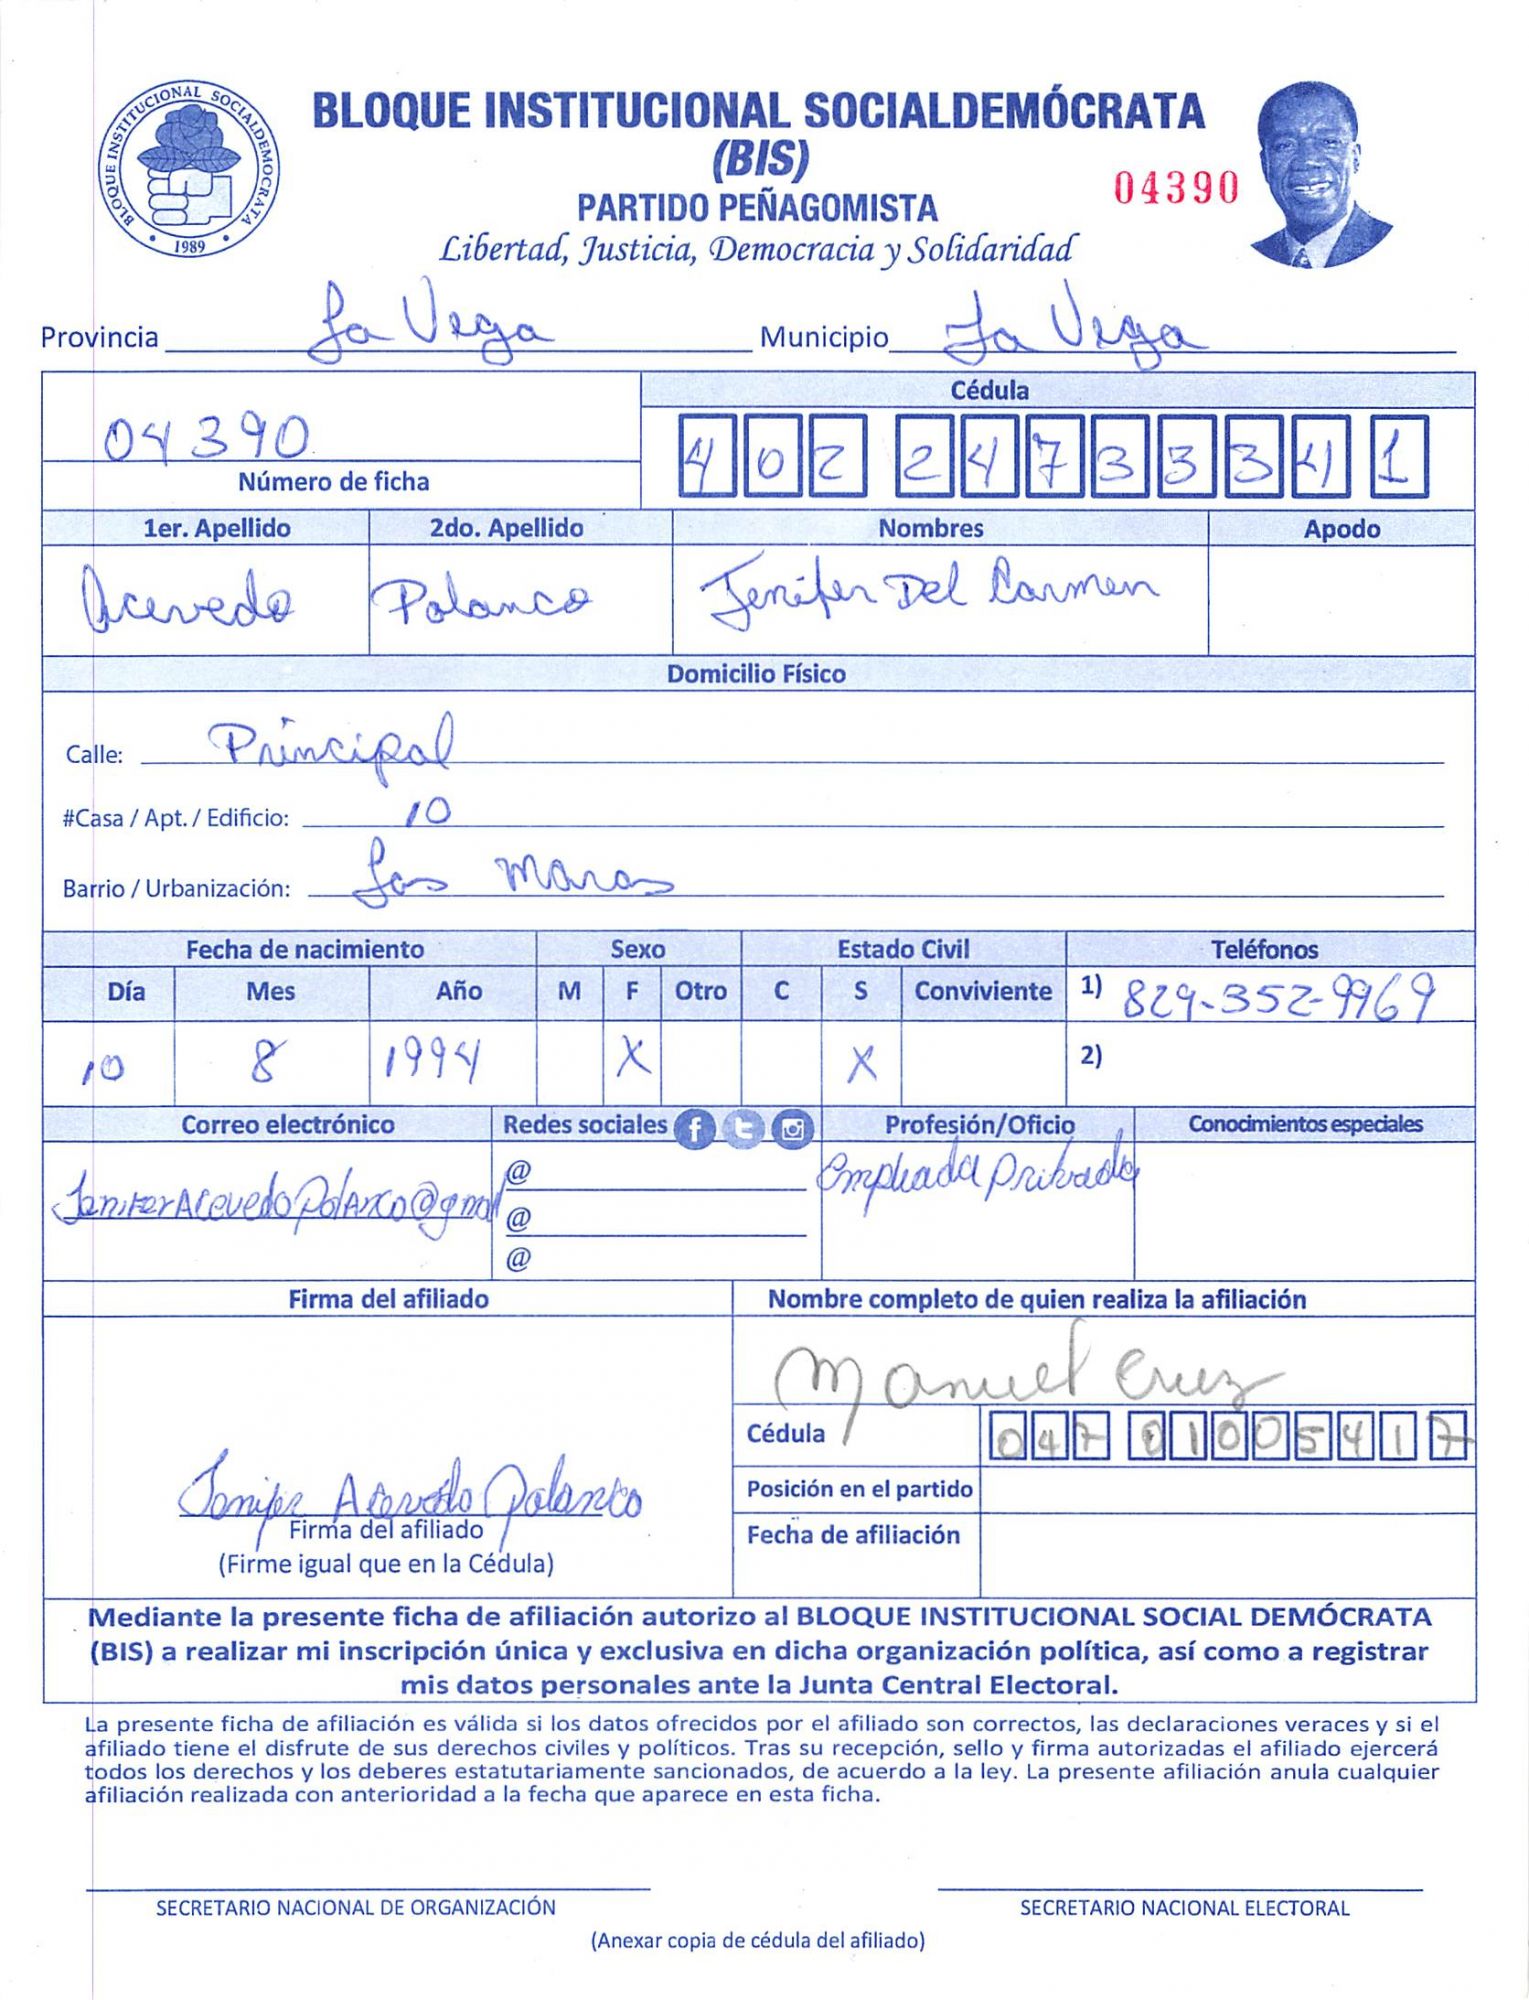 BLOQUE INSTITUCIONAL SOCIALDEMÓCRATA
BLOQUE INSTITUCIONAL SOCIALDEMÓCRATA
(BIS)
PARTIDO PEÑAGOMISTA
04390
1989
Libertad, Justicia, Democracia y Solidaridad
Provincia La Vega Municipio La Vega
Cédula
04390
402 2473334 1
Número de ficha
1er. Apellido 2do. Apellido Nombres Apodo
Acevedo Polanco Jenifer Del Carmen
Domicilio Físico
Calle: Principal
#Casa / Apt. / Edificio: 10
Barrio / Urbanización: Las Maras
Fecha de nacimiento Sexo Estado Civil Teléfonos
Día Mes Año M F Otro C S Conviviente 1) 829-352-9969
10 8 1994 X X 2)
Correo electrónico Redes sociales Profesión/Oficio Conocimientos especiales
JeniferAcevedoPolanco@gmail @ Empleada Privada
@
@
Firma del afiliado Nombre completo de quien realiza la afiliación
Manuel Cruz
Cédula 047 0100541 7
Posición en el partido
Jenifer Acevedo Polanco
Firma del afiliado Fecha de afiliación
(Firme igual que en la Cédula)
Mediante la presente ficha de afiliación autorizo al BLOQUE INSTITUCIONAL SOCIAL DEMÓCRATA
(BIS) a realizar mi inscripción única y exclusiva en dicha organización política, así como a registrar
mis datos personales ante la Junta Central Electoral.
La presente ficha de afiliación es válida si los datos ofrecidos por el afiliado son correctos, las declaraciones veraces y si el
afiliado tiene el disfrute de sus derechos civiles y políticos. Tras su recepción, sello y firma autorizadas el afiliado ejercerá
todos los derechos y los deberes estatutariamente sancionados, de acuerdo a la ley. La presente afiliación anula cualquier
afiliación realizada con anterioridad a la fecha que aparece en esta ficha.
SECRETARIO NACIONAL DE ORGANIZACIÓN SECRETARIO NACIONAL ELECTORAL
(Anexar copia de cédula del afiliado)